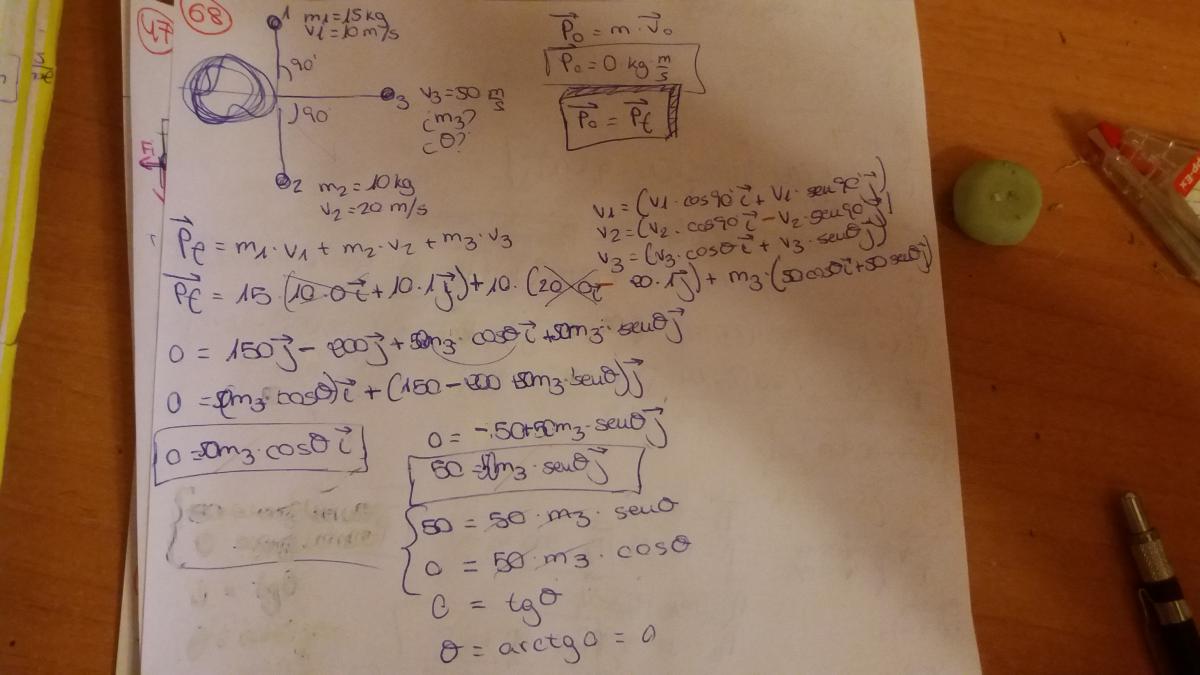 47
68
1 m1=15kg
v1=10m/s
90°
3 v3=50 m/s
¿m3?
¿θ?
90
2 m2=10kg
v2=20 m/s
P₀ = m · v₀
P₀ = 0 kg · m/s
P₀ = Pf
v1 = (v1 · cos90°i + v1 · sen90°j)
v2 = (v2 · cos90°i - v2 · sen90°j)
v3 = (v3 · cosθi + v3 · senθj)
Pf = m1 · v1 + m2 · v2 + m3 · v3
Pf = 15 · (10·0i + 10·1j) + 10 · (20·0i - 20·1j) + m3 · (50cosθi + 50senθj)
0 = 150j - 200j + 50m3 · cosθi + 50m3 · senθj
0 = (50m3 · cosθ)i + (150 - 200 + 50m3 · senθ)j
0 = 50m3 · cosθ i
0 = -50 + 50m3 · senθj
50 = 50m3 · senθj
50 = 50 · m3 · senθ
0 = 50 · m3 · cosθ
0 = tgθ
θ = arctg0 = 0